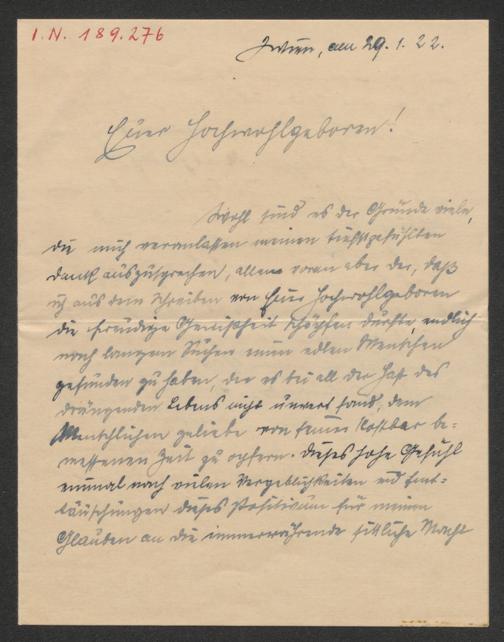 I.N. 189.276
Wien, am 29.1.22.
Euer Hochwohlgeboren!
Wohl sind es der Gründe viele,
die mich veranlassen meinen tiefstgefühlten
Dank auszusprechen, allem voran aber der, daß
ich aus dem Schreiben von Euer Hochwohlgeboren
die freudige Gewissheit schöpfen durfte, endlich
nach langem Suchen einen edlen Menschen
gefunden zu haben, der es bei all der Hast des
drängenden Lebens nicht unwert fand, dem
Menschlichen zuliebe von seiner kostbar be-
messenen Zeit zu opfern. Dieses hohe Gefühl
einmal nach vielen Vergeblichkeiten und Ent-
täuschungen dieses Positivum für meinen
Glauben an die immerwährende sittliche Macht